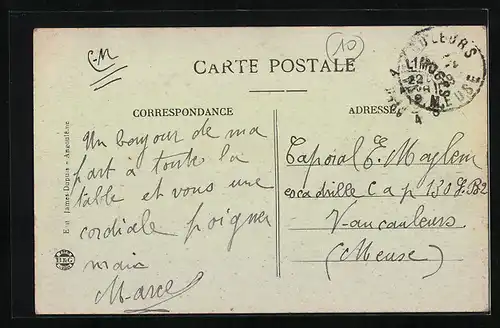 C-M
(10)
CARTE POSTALE
CORRESPONDANCE
ADRESSE
Un bonjour de ma
part à toute la
table et vous une
cordiale poigner
main
Marcel
Caporal E. Maylem
escadrille C a p 130 L.B2
Vaucauleurs
(Meuse)
LIMOGES
22
MEUSE
James-Dupuis - Angoulême
B&G